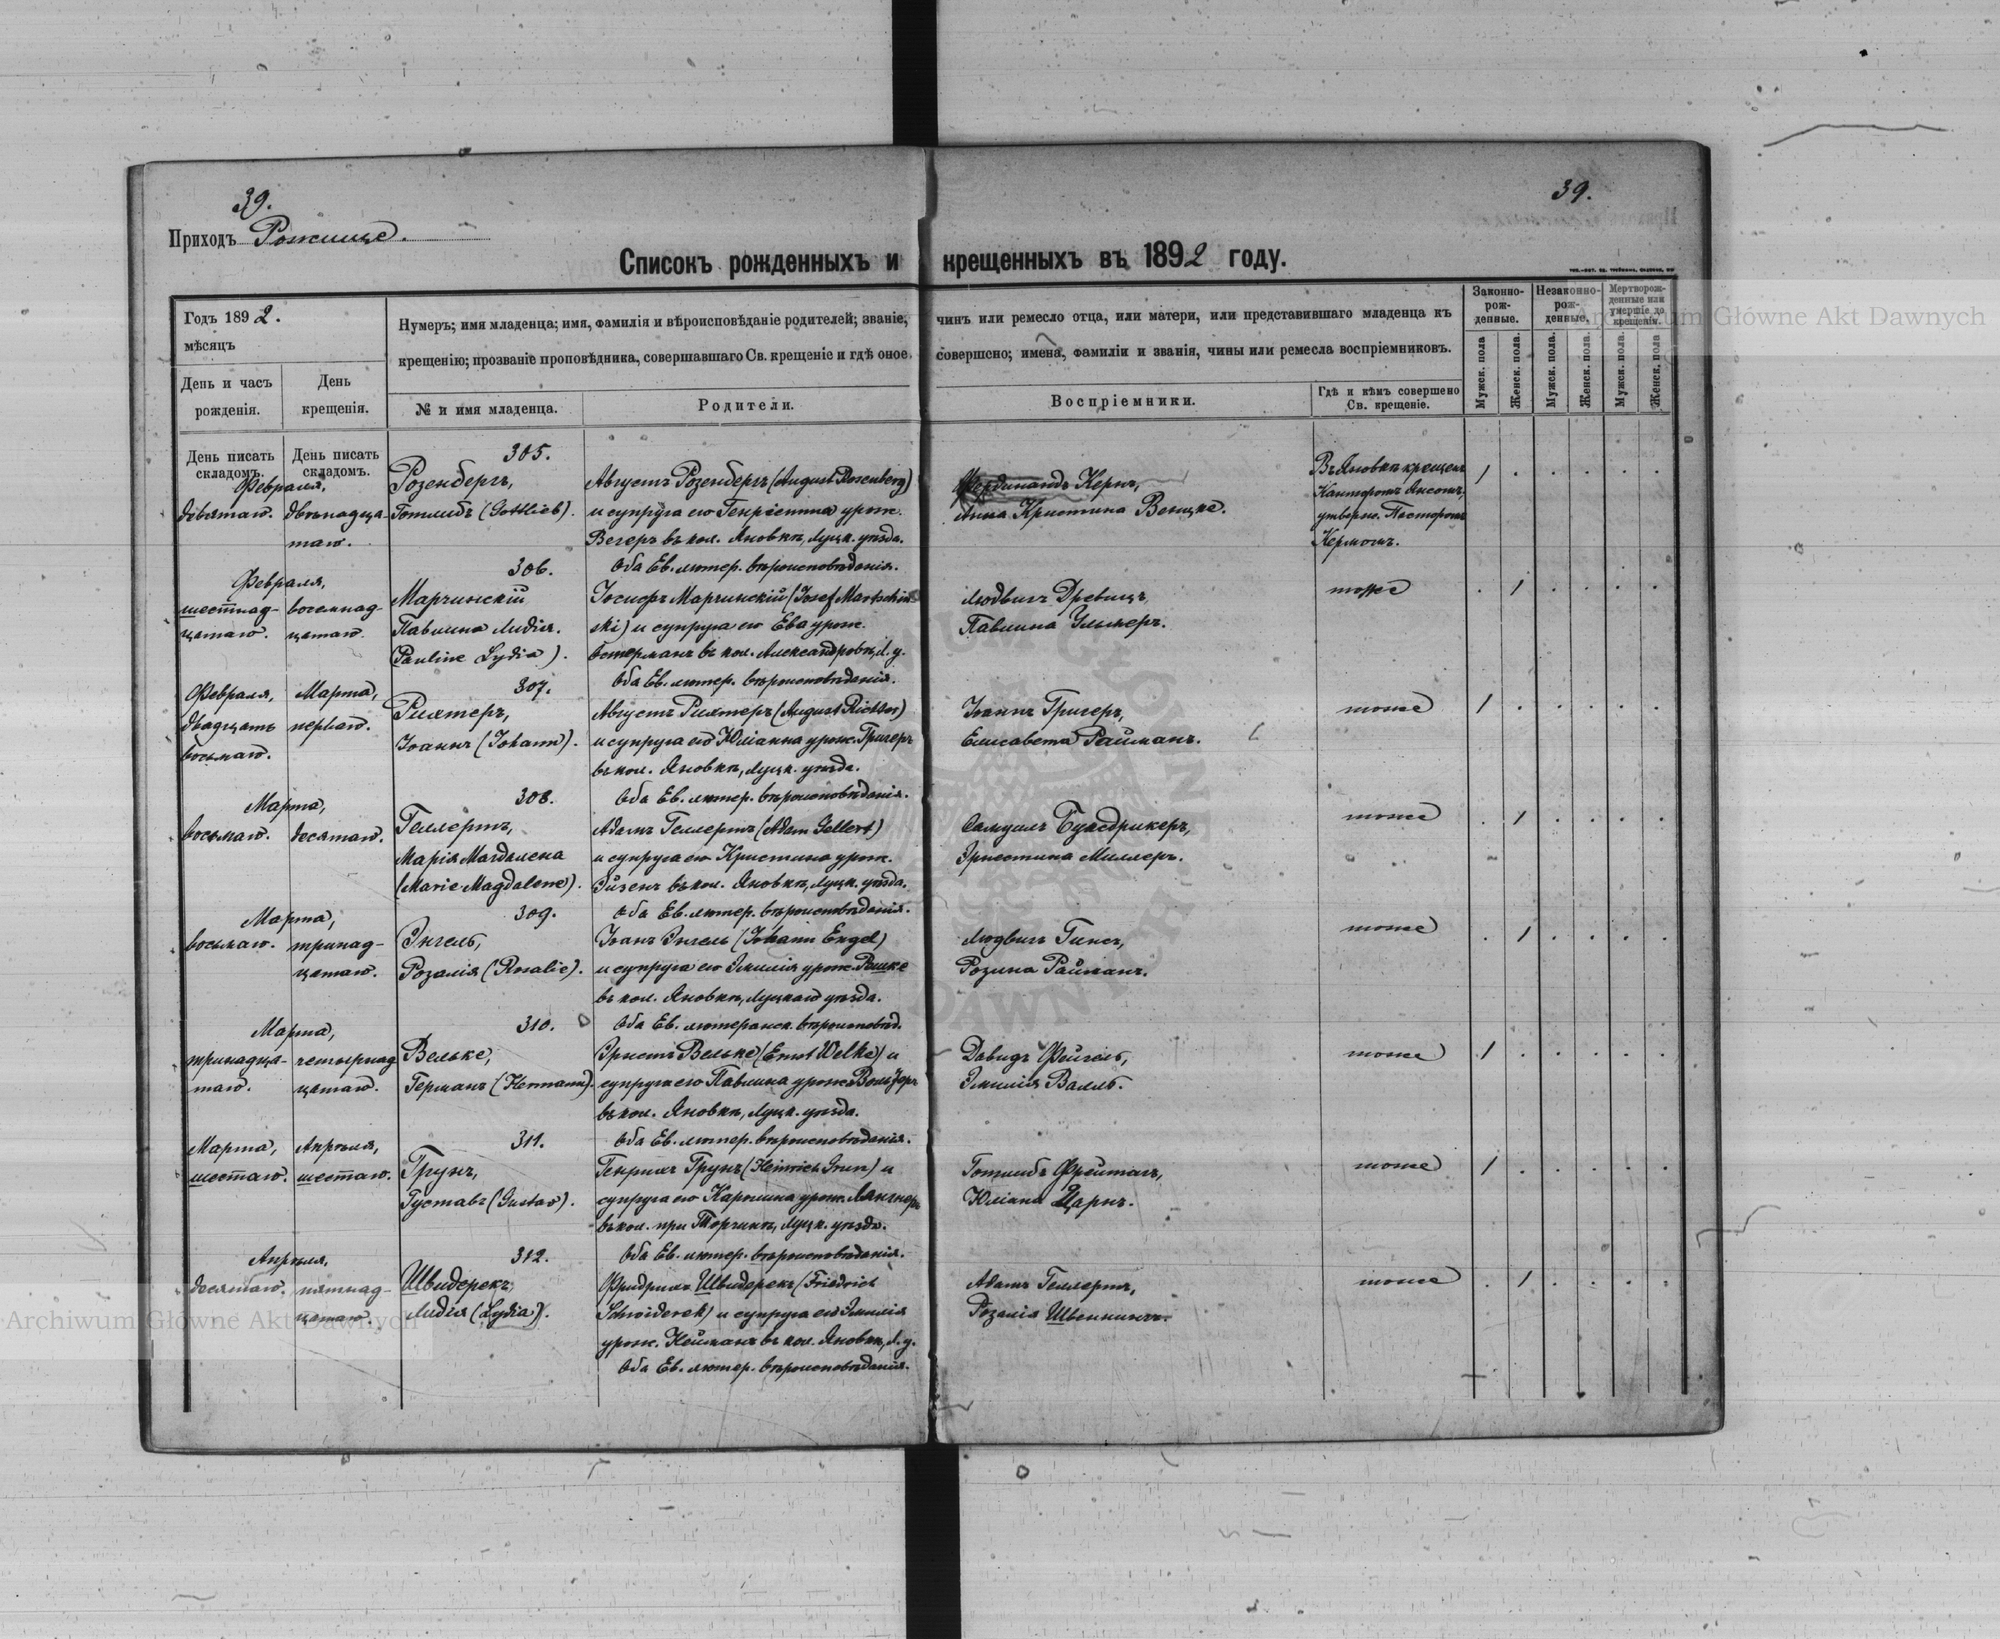 39.
39.
Приходъ Рожище.
Списокъ рожденныхъ и крещенныхъ въ 1892 году.
Годъ 1892.
мѣсяцъ
День и часъ рожденія.
День крещенія.
Нумеръ; имя младенца; имя, фамилія и вѣроисповѣданіе родителей; званіе, чинъ или ремесло отца, или матери, или представившаго младенца къ
крещенію; прозваніе проповѣдника, совершавшаго Св. крещеніе и гдѣ оное совершено; имена, фамиліи и званія, чины или ремесла воспріемниковъ.
№ и имя младенца.
Родители.
Воспріемники.
Гдѣ и кѣмъ совершено Св. крещеніе.
Законно-рож-денные.
Незаконно-рож-денные.
Мертворож-денные или умершіе до крещенія.
Мужск. пола
Женск. пола.
Мужск. пола.
Женск. пола.
Мужск. пола.
Женск. пола
День писать складомъ.
День писать складомъ.
305.
Февраля,
девятаго. двѣнадца-
таго.
Розенбергъ,
Готлибъ (Gottlieb).
Августъ Розенбергъ (August Rosenberg)
и супруга его Генріетта урож.
Вегеръ въ кол. Яновкѣ, Луцк. уѣзда.
Оба Ев. лютер. вѣроисповѣданія.
Фердинандъ Кернъ,
Анна Кристина Венцке.
Въ Яновкѣ крещенъ
Канторомъ Янсонъ,
утвержд. Пасторомъ
Кермомъ.
306.
Февраля,
шестнад- восемнад-
цатаго. цатаго.
Марчинскій
Павлина Лидія.
(Pauline Lydia).
Іосифъ Марчинскій (Josef Martschin
ski) и супруга его Ева урож.
Остерманъ въ кол. Александровкѣ, Л. у.
Оба Ев. лютер. вѣроисповѣданія.
Людвигъ Древицъ,
Павлина Ульмеръ.
тоже
307.
Февраля, Марта,
двадцать перваго.
восьмаго.
Рихтеръ,
Іоаннъ (Johann).
Августъ Рихтеръ (August Richter)
и супруга его Юліанна урож. Григеръ
въ кол. Яновкѣ, Луцк. уѣзда.
Оба Ев. лютер. вѣроисповѣданія.
Іоаннъ Григеръ,
Елисавета Райманъ.
тоже
308.
Марта,
восьмаго. десятаго.
Геллертъ,
Марія Магдалена
(Marie Magdalene).
Адамъ Геллертъ (Adam Gellert)
и супруга его Кристина урож.
Эйзенъ въ кол. Яновкѣ, Луцк. уѣзда.
Оба Ев. лютер. вѣроисповѣданія.
Самуилъ
Эрнестина Миллеръ.
тоже
309.
Марта,
восьмаго. тринад-
цатаго.
Энгель,
Розалія (Rosalie).
Іоанъ Энгель (Johann Engel)
и супруга его Эмилія урож. Рошке
въ кол. Яновкѣ, Луцкаго уѣзда.
Оба Ев. лютеранск. вѣроисповѣд.
Людвигъ Гинсъ,
Розина Райманъ.
тоже
310.
Марта,
тринадца- четырнад
таго. цатаго.
Вельке,
Германъ (Hermann).
Эрнстъ Вельке (Ernst Welke) и
супруга его Павлина урож.
въ кол. Яновкѣ, Луцк. уѣзда.
Оба Ев. лютер. вѣроисповѣданія.
Давидъ Фейгель,
Эмилія Валль.
тоже
311.
Марта, Апрѣля,
шестаго. шестаго.
Грунъ,
Густавъ (Gustav).
Генрихъ Грунъ (Heinrich Grun) и
супруга его Каролина урож. Лангнеръ
въ кол. при Торчинѣ, Луцк. уѣзда.
Оба Ев. лютер. вѣроисповѣданія.
Готлибъ Фрейтагъ,
Юліана Царнъ.
тоже
312.
Апрѣля,
десятаго. пятнад-
цатаго.
Швидерекъ,
Лидія (Lydia).
Фридрихъ Швидерекъ (Friedrich
Schwiderek) и супруга его Эмилія
урож. Нейманъ въ кол. Яновкѣ, Л. у.
Оба Ев. лютер. вѣроисповѣданія.
Адамъ Геллертъ,
Розалія
тоже
Archiwum Główne Akt Dawnych
Archiwum Główne Akt Dawnych